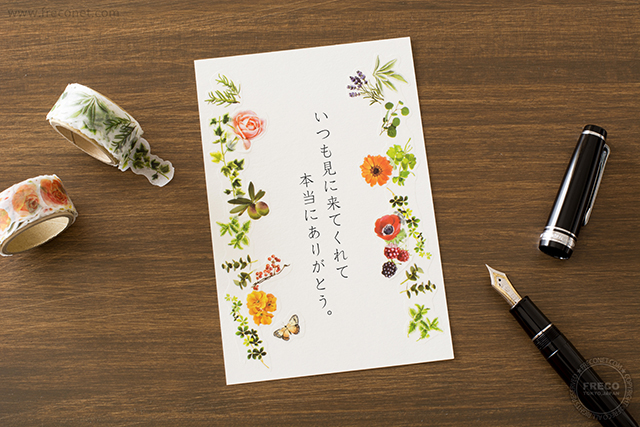 www.freconet.com
いつも見に来てくれて
本当にありがとう。
FRECO